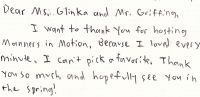 Dear Ms. Glinka and Mr. Griffing,
I want to thank you for hosting
Manners in Motion. Because I loved every
minute, I can't pick a favorite. Thank
you so much and hopefully see you in
the spring!